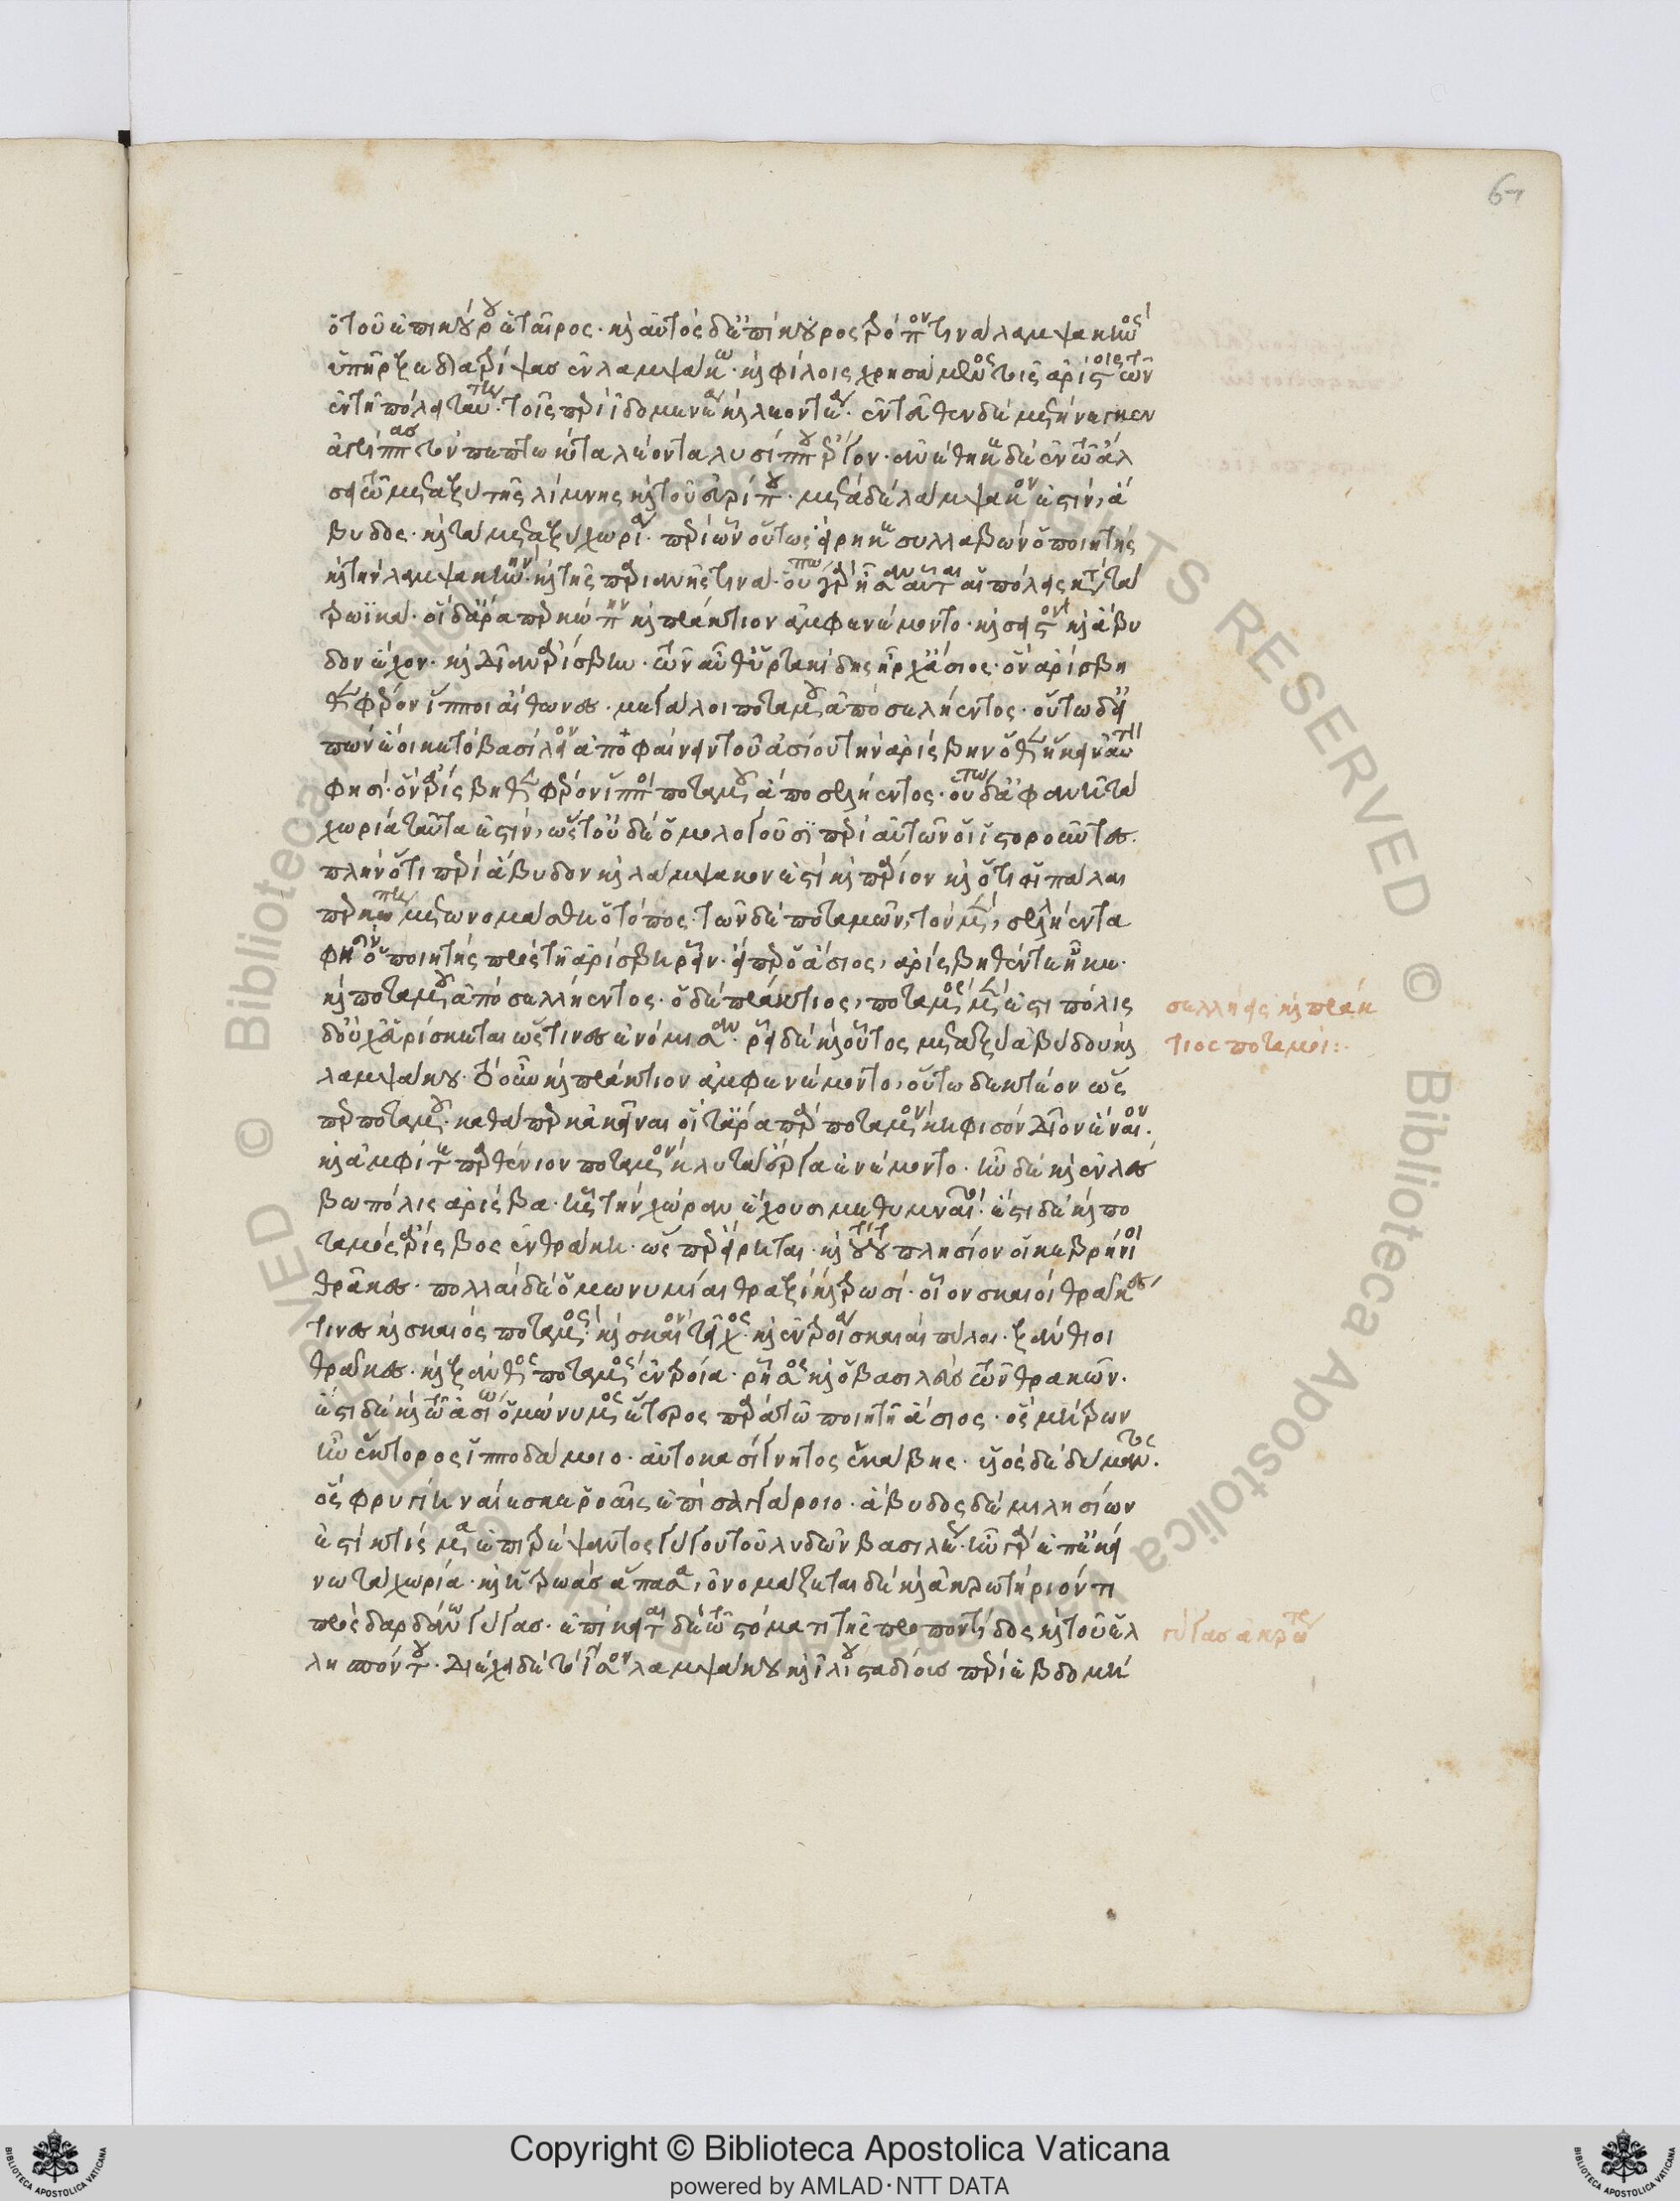 67
ὁ τοῦ ἐπικούρου ἑταῖρος· καὶ αὐτὸς δ' ἐπίκουρος τρόπον τινα λαμψακηνὸς
ὑπῆρξε διατρίψας ἐν λαμψάκω· καὶ φίλοις χρησάμενος τοῖς ἀρίστοις τῶν
ἐν τῆ πόλει ταύτη· τοῖς περὶ ἰδομενέα καὶ λεοντέα· ἐντεῦθεν δὲ μετήνεγκεν
ἀγρίππας τὸν πεπτωκότα λέοντα λυσίππου ἔργον· ἀνέθηκε δὲ ἐν τῶ ἄλ
σει τῶ μεταξὺ τῆς λίμνης καὶ τοῦ εὐρίπου· μετὰ δὲ λάμψακον ἐστὶν, ἄ
βυδος· καὶ τὰ μεταξὺ χωρία· περὶ ὧν οὕτως εἴρηκε συλλαβὼν ὁ ποιητὴς
καὶ τὴν λαμψακηνὴν· καὶ τῆς παριανῆς τινα· οὔπω γὰρ ἦσαν αὗται αἱ πόλεις κατὰ τὰ
τρωϊκά· οἳ δ' ἄρα περκώτην καὶ πράκτιον ἀμφενέμοντο· καὶ σηστὸν καὶ ἄβυ
δον ἔχον· καὶ δῖαν ἀρίσβην· τῶν αὖθ' ὑρτακίδης ἦρχ' ἄσιος· ὃν ἀρίσβη
θεν φέρον ἵπποι αἴθωνες· μεγάλοι ποταμοῦ ἀπὸ σελήεντος· οὕτω δ' εἰ
πὼν ἔοικε τὸ βασίλειον ἀποφαίνειν τοῦ ἀσίου τὴν ἀρίσβην ὅθεν ἥκειν αὐτόν
φησί· ὃν ἀρίσβηθεν φέρον ἵπποι ποταμοῦ ἀπο σελήεντος· οὕτω δ' ἀφανῆ τὰ
χωρία ταῦτα ἐστίν, ὥστ' οὐδὲ ὁμολογοῦσι περὶ αὐτῶν οἱ ἱστοροῦντες·
πλὴν ὅτι περὶ ἄβυδον καὶ λάμψακον ἐστὶ καὶ πάριον καὶ ὅτι ἡ πάλαι
περκώτη μετωνομάσθη ὁ τόπος· τῶν δὲ ποταμῶν, τὸν μὲν, σελλήεντα
φησὶν ὁ ποιητὴς πρὸς τῆ ἀρίσβη ῥεῖν· εἴπερ ὁ ἄσιος, ἀρίσβηθέν τε ἧκεν·
καὶ ποταμοῦ ἀπὸ σελλήεντος· ὁ δὲ πράκτιος, ποταμὸς μὲν ἐστι πόλις
δ' οὐχ εὑρίσκεται ὥς τινες ἐνόμισαν· ῥεῖ δὲ καὶ οὗτος μεταξὺ ἀβύδου καὶ
λαμψάκου· τὸ οὖν καὶ πράκτιον ἀμφενέμοντο, οὕτω δεκτέον ὡς
περὶ ποταμοῦ· καθάπερ κἀκεῖναι οἵ τ' ἄρα παρὰ ποταμὸν κηφισὸν δῖον ἔναιον·
καὶ ἀμφί τε παρθένιον ποταμὸν κλυτὰ ἔργα ἐνέμοντο· ἦν δὲ καὶ ἐν λέσ
βω πόλις ἀρίσβα· ἧς τὴν χώραν ἔχουσι μηθυμναῖοι· ἔστι δὲ καὶ πο
ταμὸς ἄρισβος ἐν θράκη· ὡς προείρηται· καὶ τούτου πλησίον οἱ κεβρήνιοι
θρᾶκες· πολλαὶ δὲ ὁμωνυμίαι θραξὶ καὶ τρωσί· οἷον σκαιοὶ θρᾶκες
τινες καὶ σκαιὸς ποταμός· καὶ σκαιὸν τεῖχος· καὶ ἐν τροία σκαιαὶ πύλαι· ξάνθιοι
θρᾶκες· καὶ ξάνθος ποταμὸς ἐν τροία· ῥῆσος καὶ ὁ βασιλεὺς τῶν θρακῶν·
ἔστι δὲ καὶ τῶ ἀσίω ὁμώνυμος ἕτερος παρὰ τῶ ποιητῆ ἄσιος· ὃς μήτρων
ἦν ἕκτορος ἱπποδάμοιο· αὐτοκασίγνητος ἑκάβης· υἱὸς δὲ δύμαντος·
ὃς φρυγίην ναίεσκε ῥοῆις ἐπὶ σαγγάροιο· ἄβυδος δὲ μιλησίων
ἐστὶ κτίσμα ἐπιτρέψαντος γύγου τοῦ λυδῶν βασιλέως· ἦν γὰρ ἐπ' ἐκεί
νω τὰ χωρία· καὶ ἡ τρωὰς ἅπασα, ὀνομάζεται δὲ καὶ ἀκρωτήριόν τι
πρὸς δαρδάνω γύγας· ἐπίκειται δὲ τῶ στόματι τῆς προποντίδος καὶ τοῦ ἑλ
λησπόντου· διέχει δὲ τὸ ἴσον λαμψάκου καὶ ἰλίου σταδίους περὶ ἑβδομή
σελλήεις καὶ πράκ
τιος ποταμοί:
γύγας ἀκρωτήριον
Copyright © Biblioteca Apostolica Vaticana
powered by AMLAD·NTT DATA